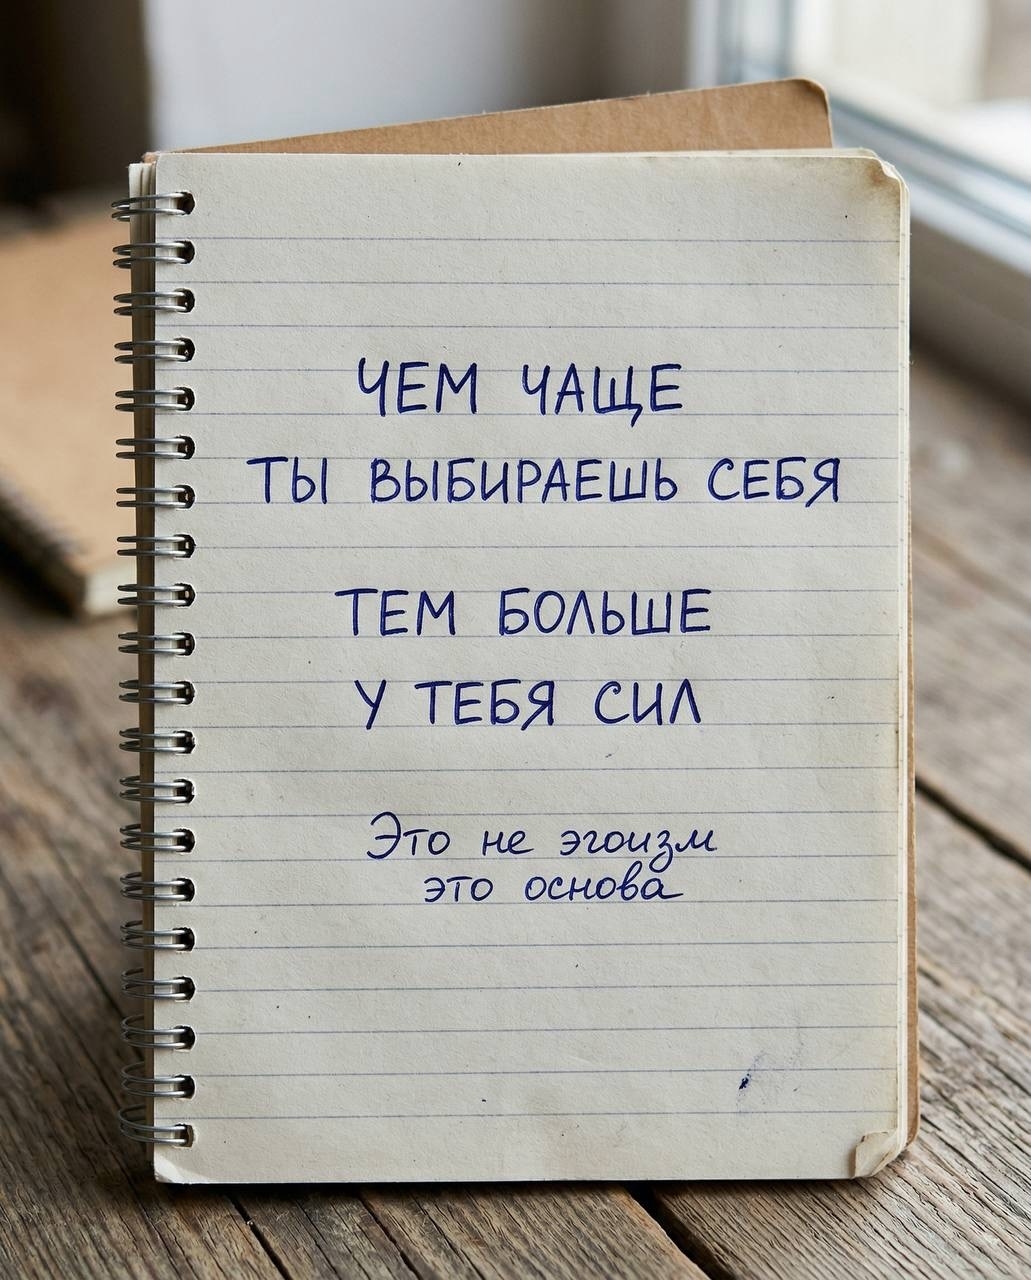 ЧЕМ ЧАЩЕ
ТЫ ВЫБИРАЕШЬ СЕБЯ
ТЕМ БОЛЬШЕ
У ТЕБЯ СИЛ
Это не эгоизм
это основа